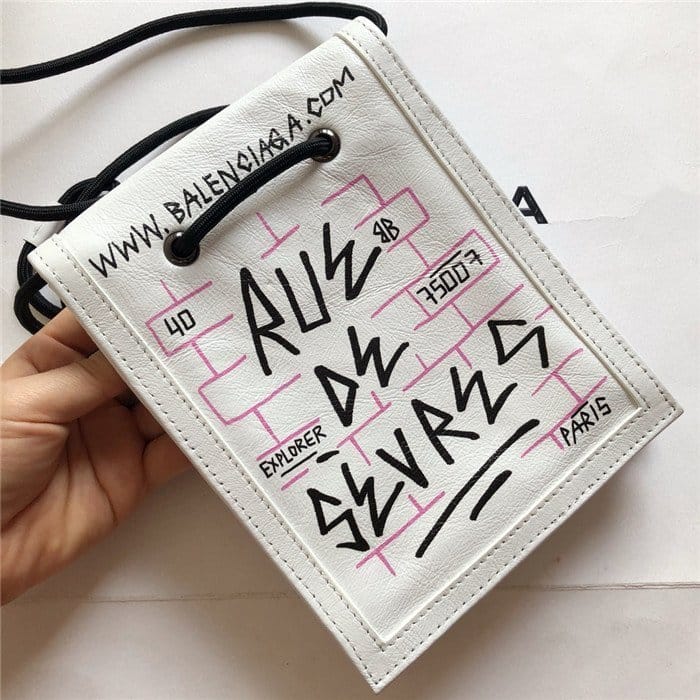 WWW.BALENCIAGA.COM
RUE BB
40
75007
DE
SÈVRES
EXPLORER
PARIS
A